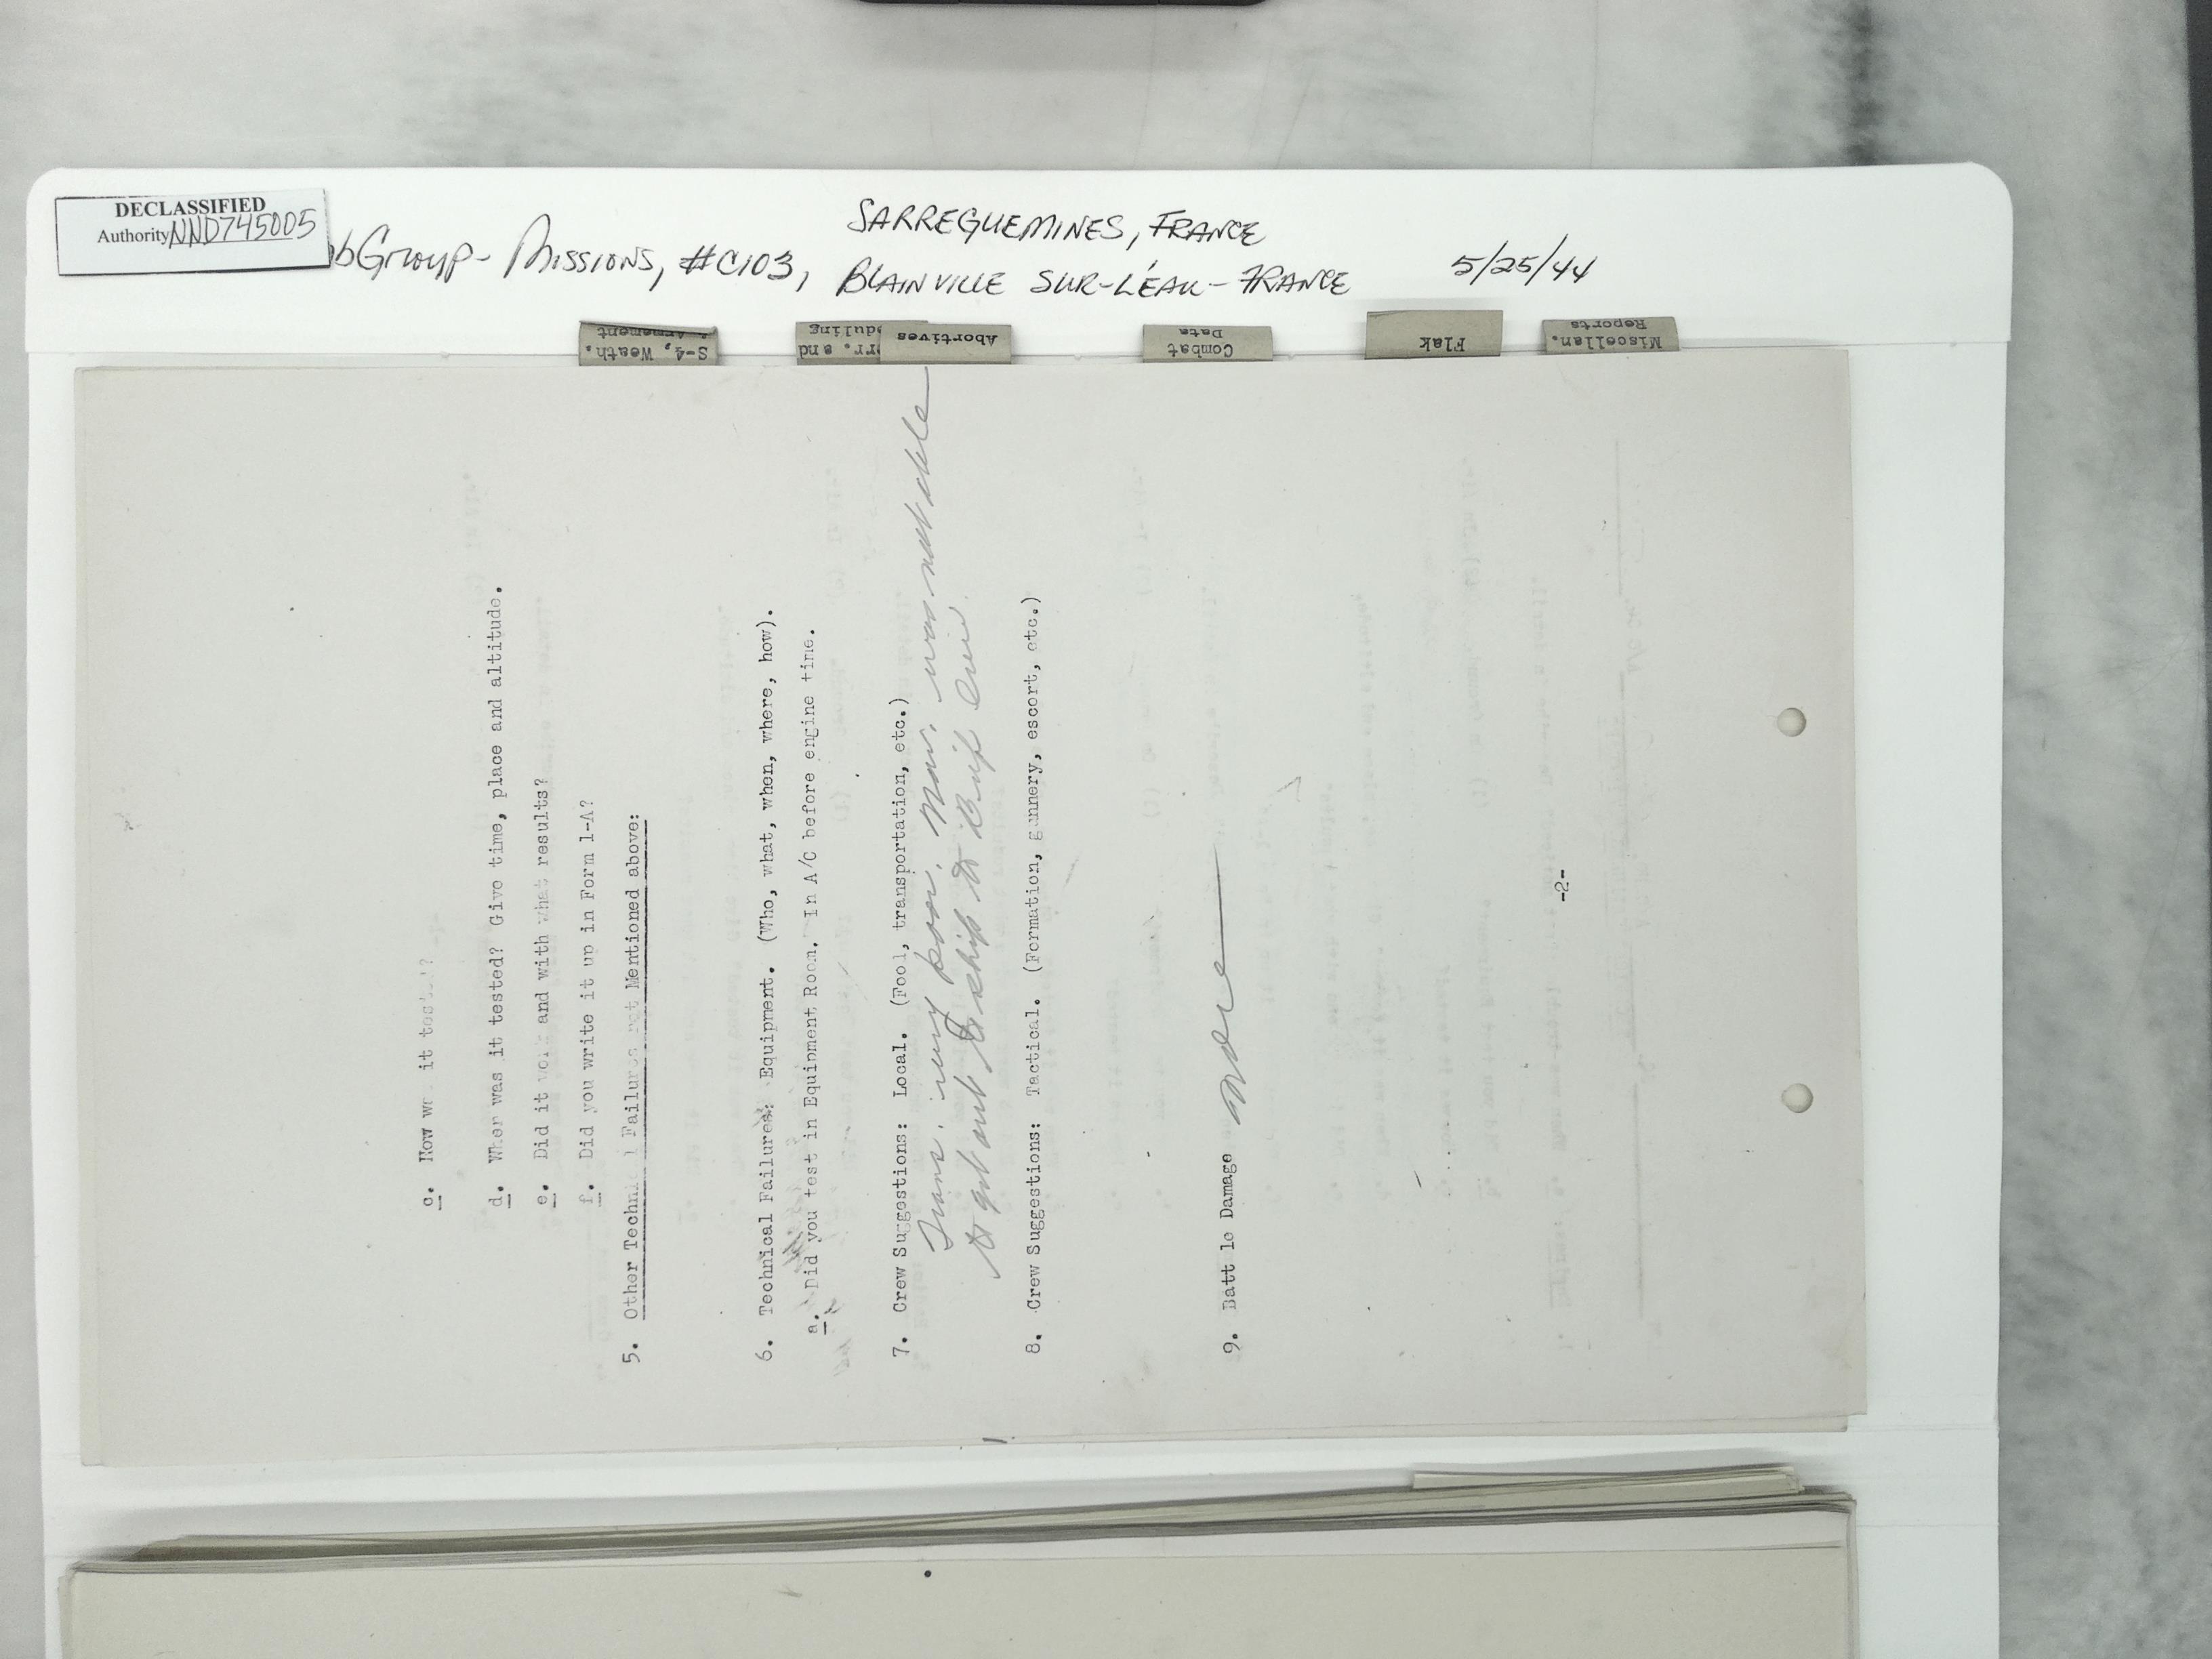 DECLASSIFIED
Authority NND745005
bGroup - Missions, #C103,
SARREGUEMINES, FRANCE
BLAINVILLE SUR-L'EAU - FRANCE
5/25/44
S-4, Weath.
Armement
rr. and
duling
Abortives
Combat
Data
Flak
Miscellan.
Reports
c. How it
d. When was it tested? Give time, place and altitude.
e. Did it work and with what results?
f. Did you write it up in Form 1-A?
5. Other Technical Failures not Mentioned above:
6. Technical Failures: Equipment. (Who, what, when, where, how).
a. Did you test in Equipment Room. In A/C before engine time.
7. Crew Suggestions: Local. (Food, transportation, etc.)
Trans. very poor. Nav. was not able
to get out to ship to Brief Crew
8. Crew Suggestions: Tactical. (Formation, gunnery, escort, etc.)
9. Batt le Damage
-2-